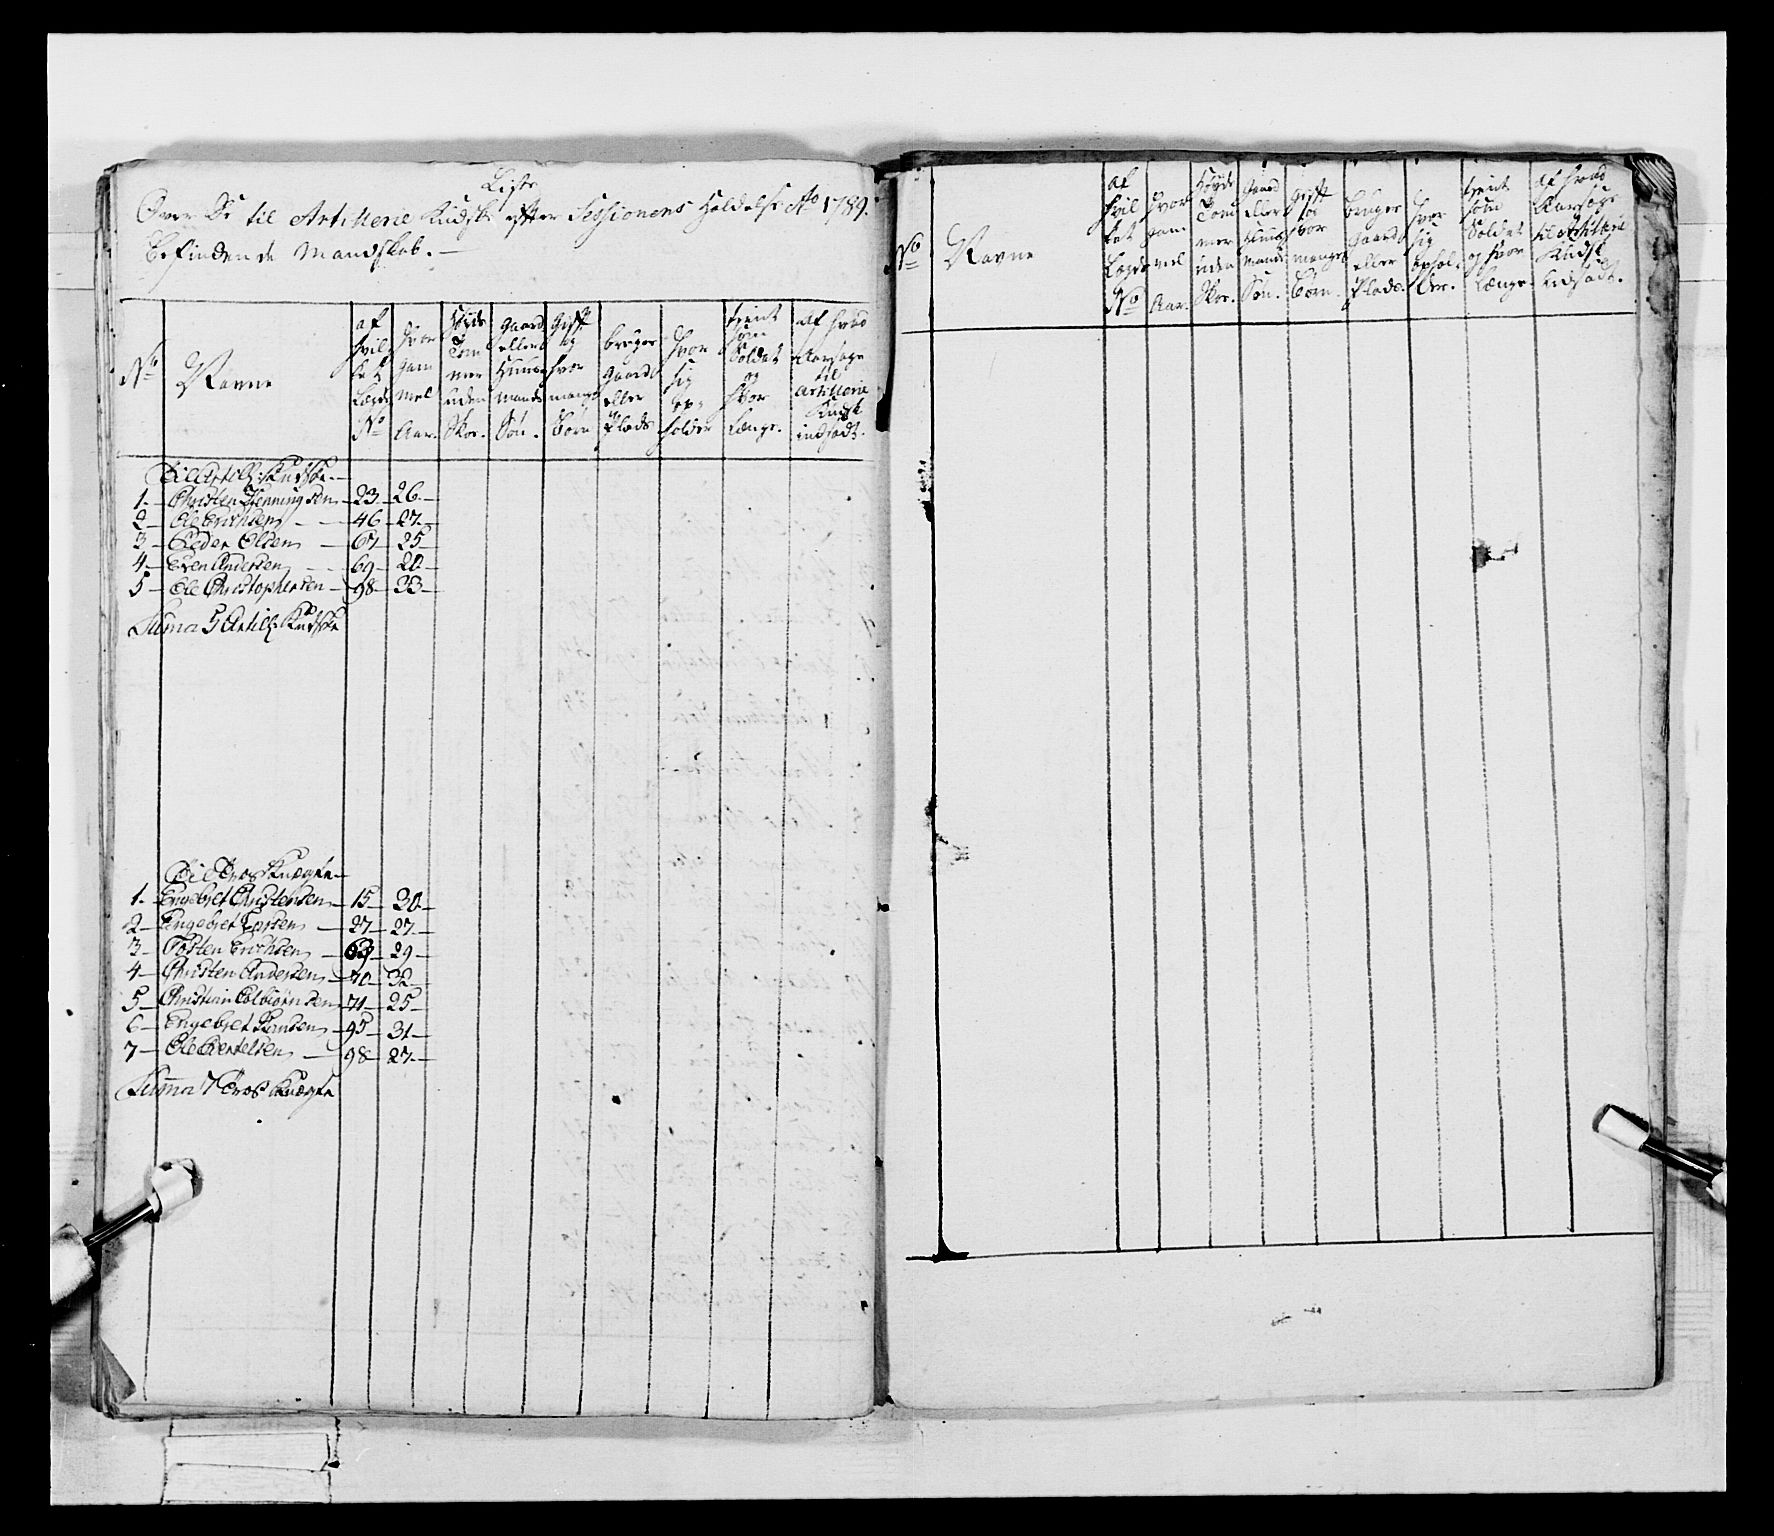 Liste
Over De til Artillerie Kudsk efter Sessionens Holdelse Ao 1789.
befindende Mandskab. -
No
Navne
af hvilket Lægds No
hvor gammel Aar.
Høyde Tommer uden Skoe.
Gaard eller Huusmands Søn.
Gift og hvor mange Børn
bruger Gaard eller Plads
hvor sig opholder
tient som Soldat og hvor længe.
af hvad Aarsage til Artillerie Kudsk indsadt.
Til Artill: Kudske.
1 - Christen Henningsen - 23 - 26 -
2 - Ole Erichsen - 46 - 27 -
3 - Peder Olsen - 67 - 25 -
4 - Even Andersen - 69 - 20 -
5 - Ole Christophersen - 98 - 33 -
Suma 5 Artill: Kudske
Til Tros Knægte -
1 - Engebret Christensen - 15 - 30 -
2 - Engebret Larsen - 27 - 27 -
3 - Tosten Erichsen - 63 - 29 -
4 - Christen Andersen - 70 - 32 -
5 - Christian Colbiørnsen - 71 - 25 -
6 - Engebret Hansen - 95 - 31 -
7 - Ole Bertelsen - 98 - 27 -
Summa 7 Tros Knægte
No
Navne
af hvilket Lægds No
hvor gammel Aar.
Høyde Tommer uden Skoe.
Gaard eller Huusmands Søn.
Gift og hvor mange Børn.
bruger Gaard eller Plads.
hvor sig opholder.
tient som Soldat og hvor længe.
af hvad Aarsage til Artillerie Kudsk indsadt.